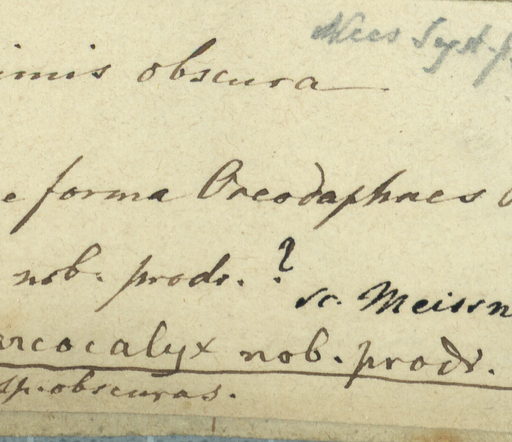 Nees Syst. p.
imis obscura
e forma Oreodaphnes
nob. prodr. ?
sc. Meissn
arcocalyx nob. prodr.
sp. obscuras.